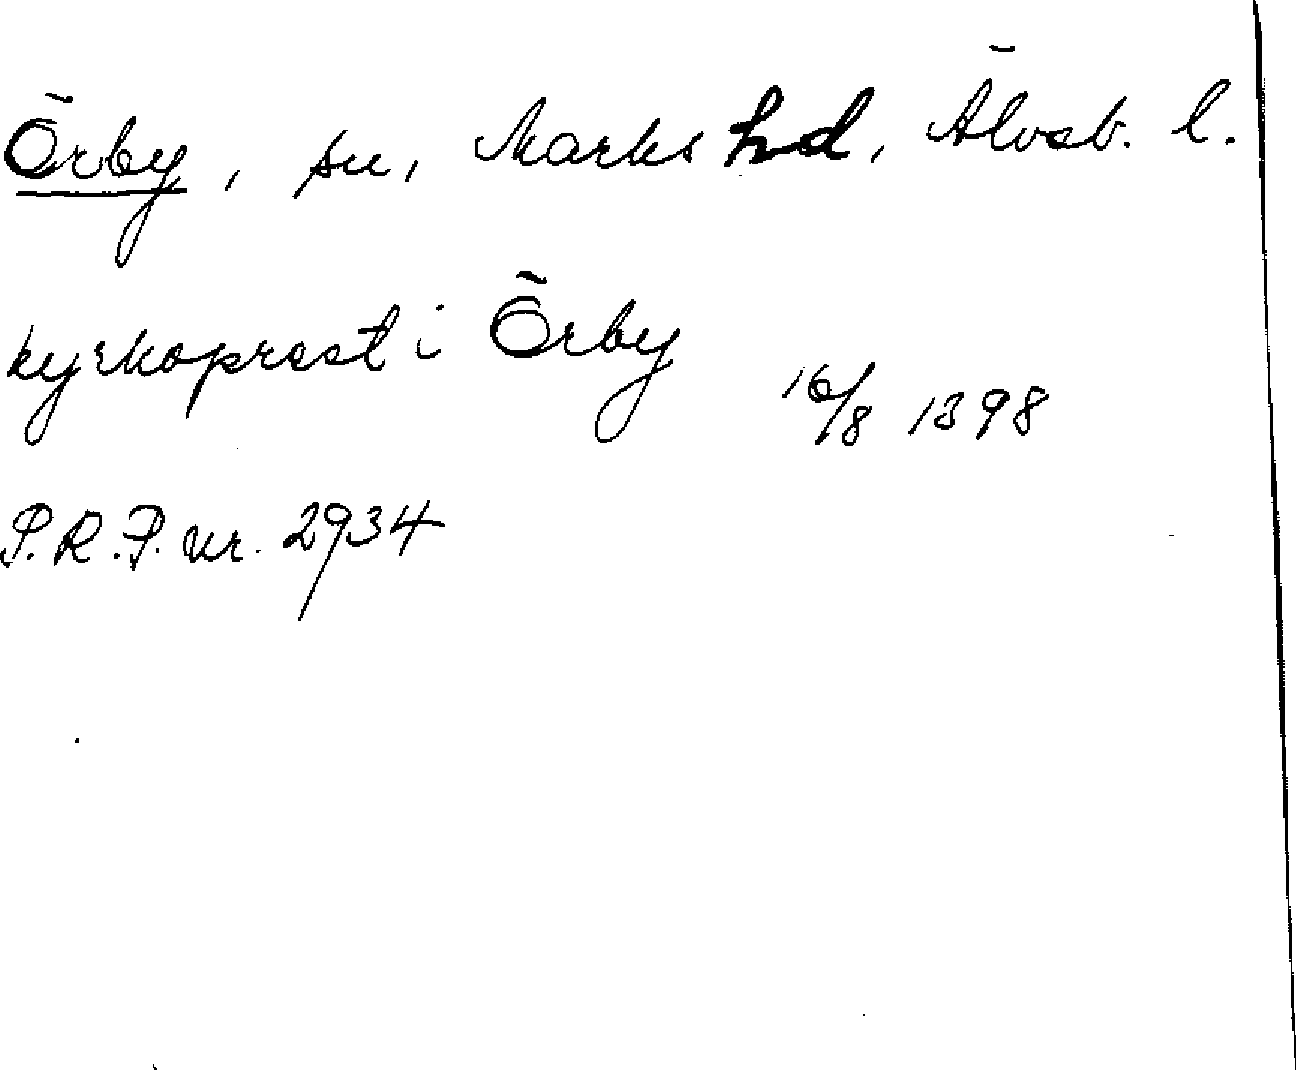 Örby, sn, Marks hd, Älvsb. l.
kyrkoprest i Örby 16/8 1398
P.R.P. nr. 2934